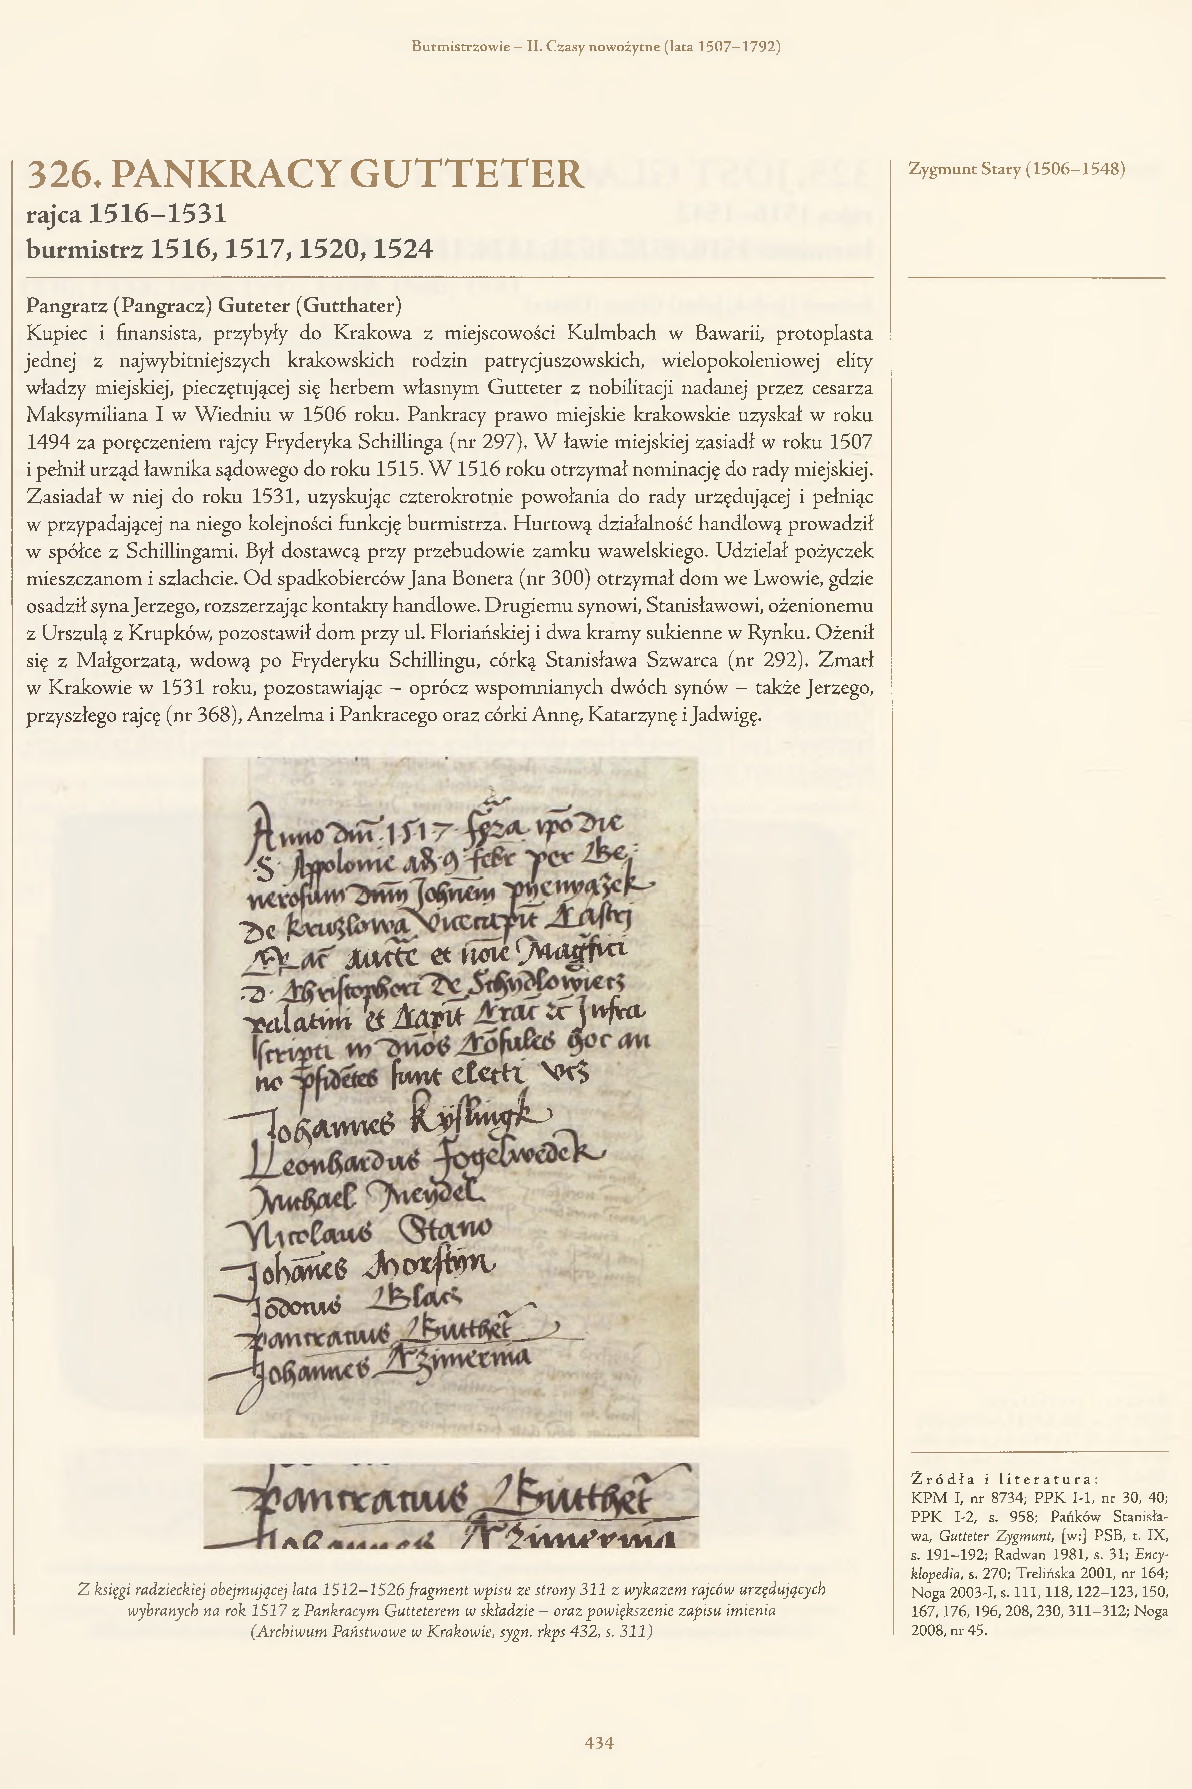 Burmistrzowie – II. Czasy nowożytne (lata 1507–1792)
326. PANKRACY GUTTETER
rajca 1516–1531
burmistrz 1516, 1517, 1520, 1524
Zygmunt Stary (1506–1548)
Pangratz (Pangracz) Guteter (Gutthater)
Kupiec i finansista, przybyły do Krakowa z miejscowości Kulmbach w Bawarii, protoplasta
jednej z najwybitniejszych krakowskich rodzin patrycjuszowskich, wielopokoleniowej elity
władzy miejskiej, pieczętującej się herbem własnym Gutteter z nobilitacji nadanej przez cesarza
Maksymiliana I w Wiedniu w 1506 roku. Pankracy prawo miejskie krakowskie uzyskał w roku
1494 za poręczeniem rajcy Fryderyka Schillinga (nr 297). W ławie miejskiej zasiadł w roku 1507
i pełnił urząd ławnika sądowego do roku 1515. W 1516 roku otrzymał nominację do rady miejskiej.
Zasiadał w niej do roku 1531, uzyskując czterokrotnie powołania do rady urzędującej i pełniąc
w przypadającej na niego kolejności funkcję burmistrza. Hurtową działalność handlową prowadził
w spółce z Schillingami. Był dostawcą przy przebudowie zamku wawelskiego. Udzielał pożyczek
mieszczanom i szlachcie. Od spadkobierców Jana Bonera (nr 300) otrzymał dom we Lwowie, gdzie
osadził syna Jerzego, rozszerzając kontakty handlowe. Drugiemu synowi, Stanisławowi, ożenionemu
z Urszulą z Krupków, pozostawił dom przy ul. Floriańskiej i dwa kramy sukienne w Rynku. Ożenił
się z Małgorzatą, wdową po Fryderyku Schillingu, córką Stanisława Szwarca (nr 292). Zmarł
w Krakowie w 1531 roku, pozostawiając – oprócz wspomnianych dwóch synów – także Jerzego,
przyszłego rajcę (nr 368), Anzelma i Pankracego oraz córki Annę, Katarzynę i Jadwigę.
Anno 1517 die
S. Appolonie 9 febr per Ge
nerosum
de
et Magfici
D. Christopheri de Schydlowiecz
palatini et Capit Crac Infra
scripti in hoc an
no sunt electi
Johannes
Leonhardus Fogelwedek
Michael Meydel
Nicolaus Stano
Johannes Morstyn
Jodocus Glacz
pancracius Gutthet
Johannes Czimerma
pancracius Gutthet
Johannes Czimerma
Z księgi radzieckiej obejmującej lata 1512–1526 fragment wpisu ze strony 311 z wykazem rajców urzędujących
wybranych na rok 1517 z Pankracym Gutteterem w składzie – oraz powiększenie zapisu imienia
(Archiwum Państwowe w Krakowie, sygn. rkps 432, s. 311)
Źródła i literatura:
KPM I, nr 8734; PPK I-1, nr 30, 40;
PPK I-2, s. 958; Pańków Stanisła-
wa, Gutteter Zygmunt, [w:] PSB, t. IX,
s. 191–192; Radwan 1981, s. 31; Ency-
klopedia, s. 270; Trelińska 2001, nr 164;
Noga 2003-I, s. 111, 118, 122–123, 150,
167, 176, 196, 208, 230, 311–312; Noga
2008, nr 45.
434